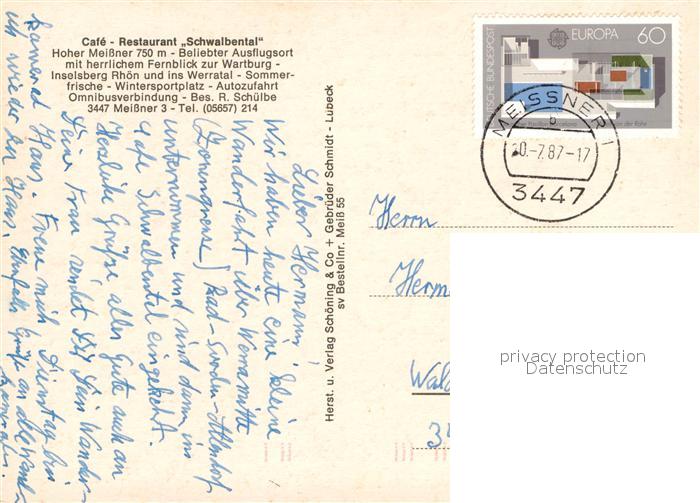 Café - Restaurant „Schwalbental"
Hoher Meißner 750 m - Beliebter Ausflugsort
mit herrlichem Fernblick zur Wartburg -
Inselsberg Rhön und ins Werratal - Sommer-
frische - Wintersportplatz - Autozufahrt
Omnibusverbindung - Bes. R. Schülbe
3447 Meißner 3 - Tel. (05657) 214
Lieber Hermann,
Wir haben heute eine kleine
Wanderfahrt über Werramitte
(Zonengrenze) Bad-Sooden-Allendorf
unternommen und sind dann im
Cafe Schwalbental eingekehrt.
Herzliche Grüße alles Gute auch an
Deine Frau sendet Dir Dein Wander-
kamerad Hans. Freue mich Dienstag bin
ich wieder zu Haus. Grüße an alle
Herst. u. Verlag Schöning & Co + Gebrüder Schmidt - Lübeck
sv Bestellnr. Meiß 55
DEUTSCHE BUNDESPOST
EUROPA
60
MEISSNER 1
b
-7.87-17
3447
Herrn
Herm
Wal
3
privacy protection
Datenschutz